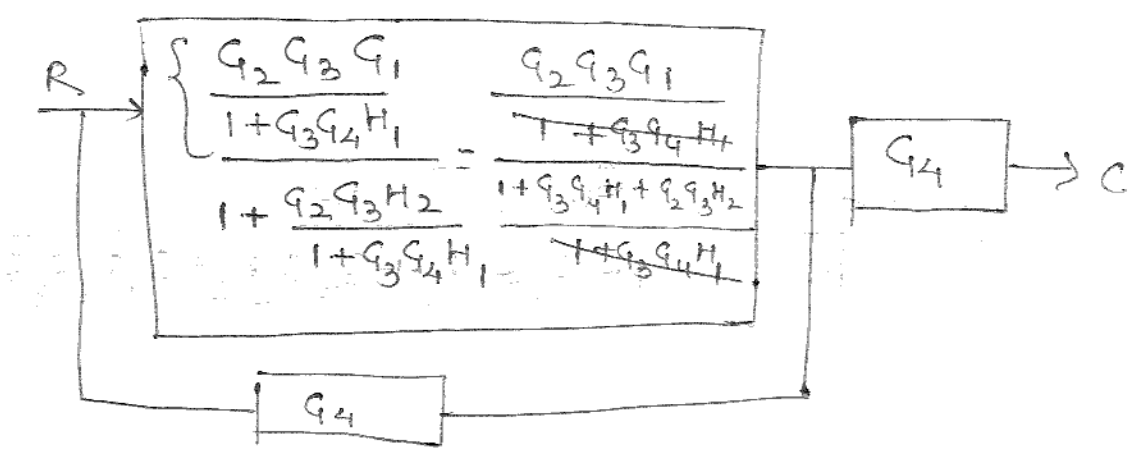 R
G₂G₃G₁ / 1+G₃G₄H₁ / 1 + G₂G₃H₂ / 1+G₃G₄H₁ = G₂G₃G₁ / 1+G₃G₄H₁ / 1+G₃G₄H₁+G₂G₃H₂ / 1+G₃G₄H₁
G₄
C
G₄